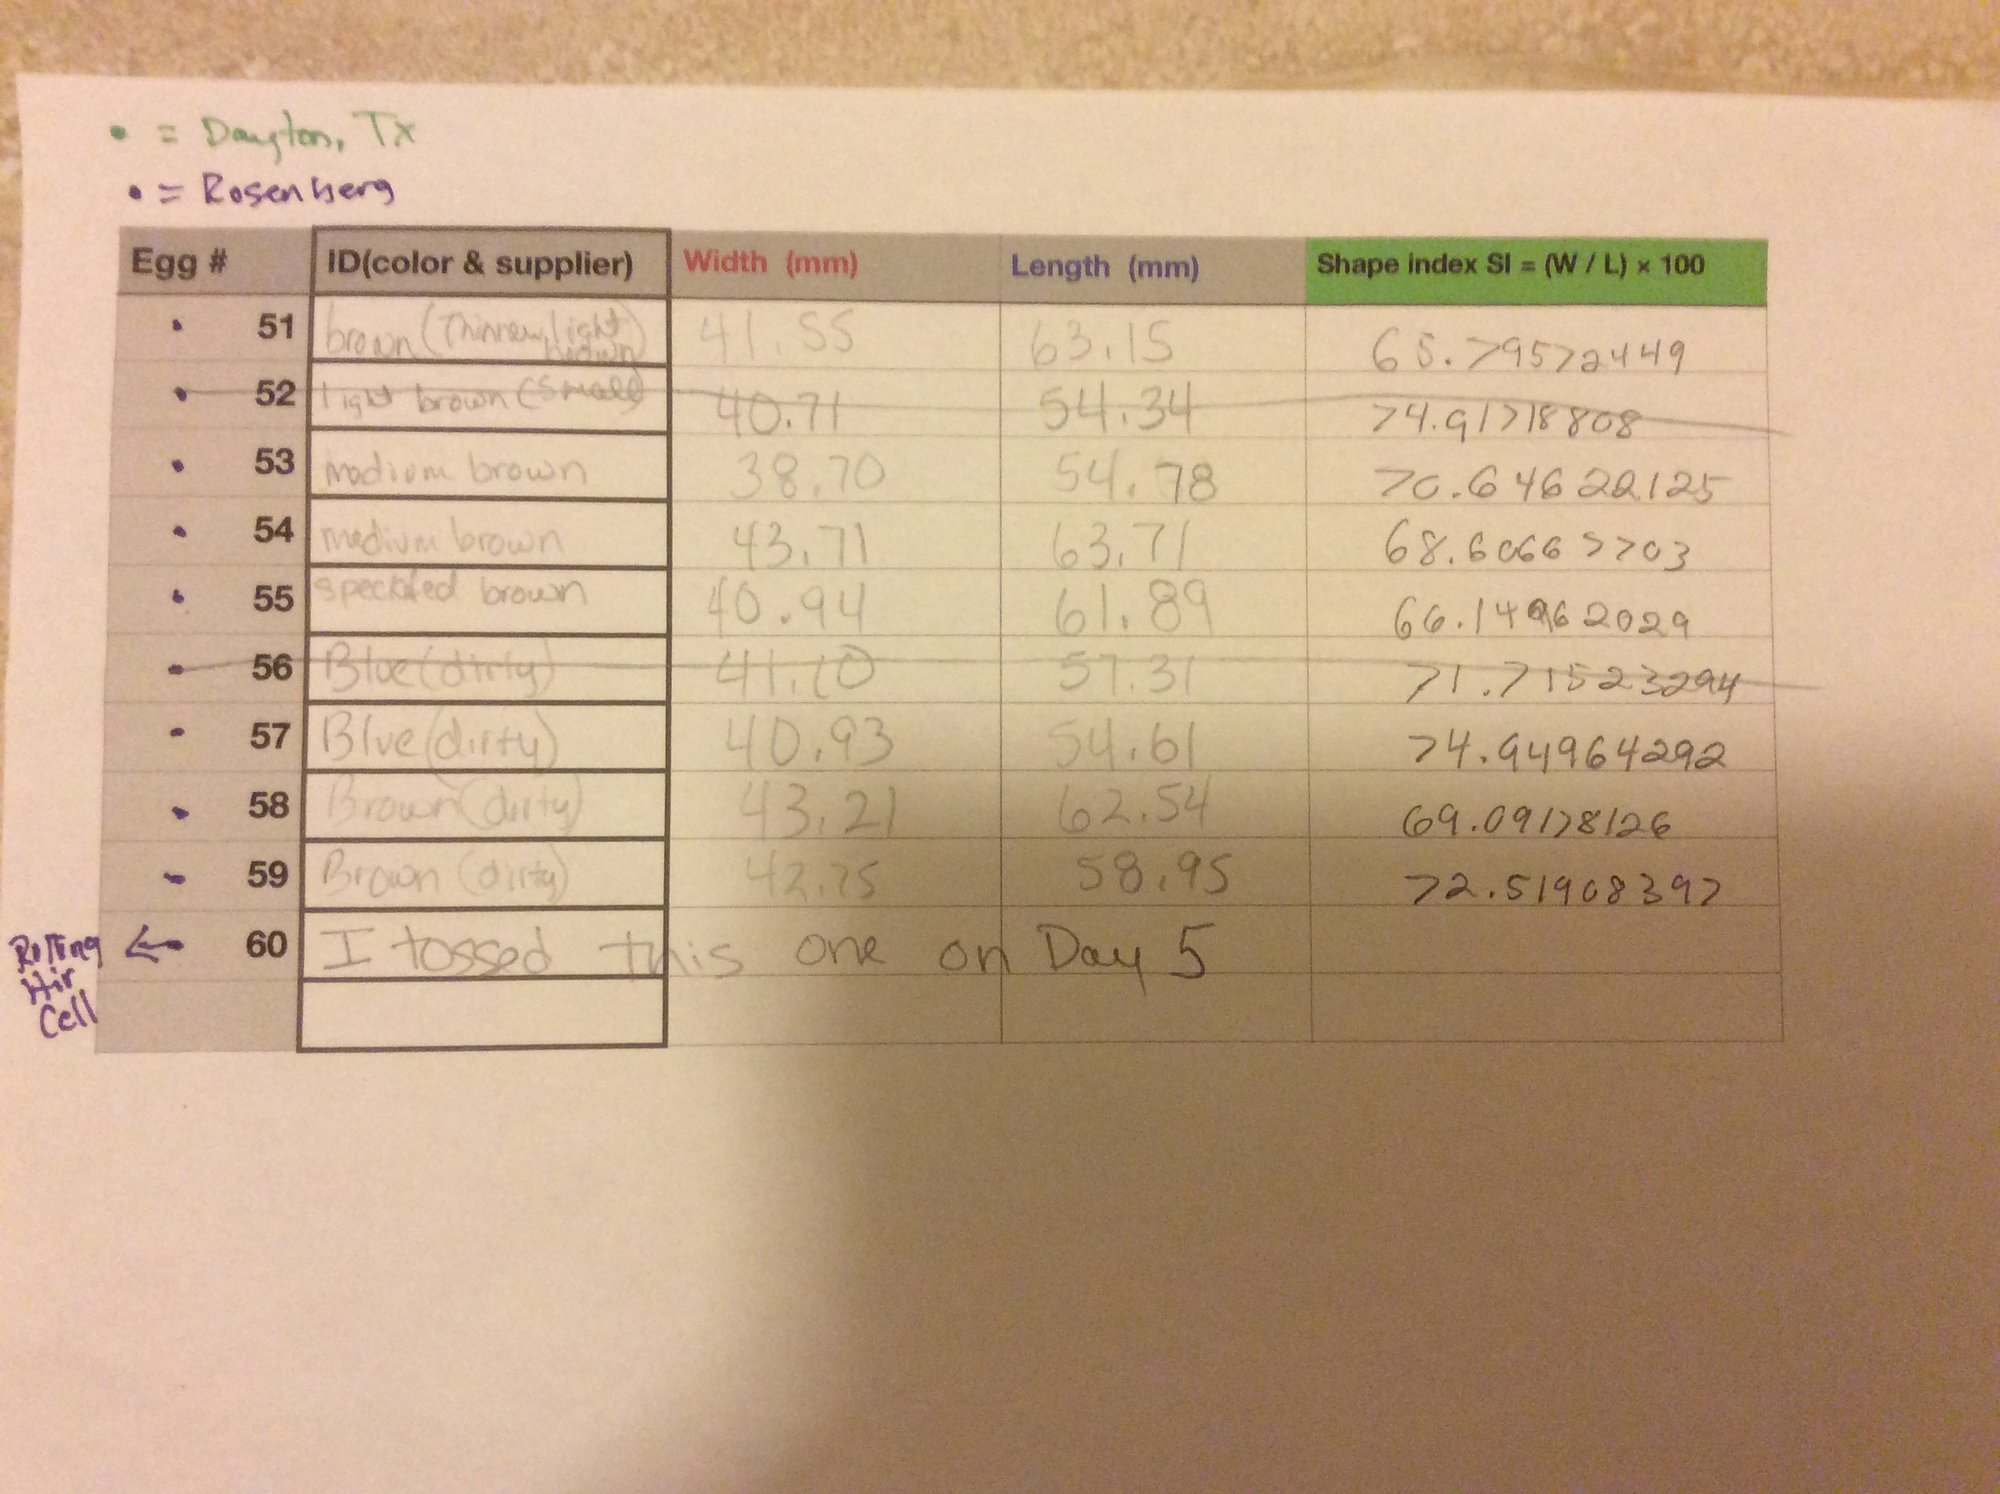 • = Dayton, TX
• = Rosenberg
Egg # ID(color & supplier) Width (mm) Length (mm) Shape index SI = (W / L) × 100
• 51 brown (Thinner, light brown) 41.55 63.15 65.79572449
• 52 light brown (small) 40.71 54.34 74.91718808
• 53 medium brown 38.70 54.78 70.64622125
• 54 medium brown 43.71 63.71 68.60667703
• 55 speckled brown 40.94 61.89 66.14962029
• 56 Blue (dirty) 41.10 57.31 71.715233294
• 57 Blue (dirty) 40.93 54.61 74.94964292
• 58 Brown (dirty) 43.21 62.54 69.09178126
• 59 Brown (dirty) 42.75 58.95 72.51908397
Rolling Air Cell ← • 60 I tossed this one on Day 5